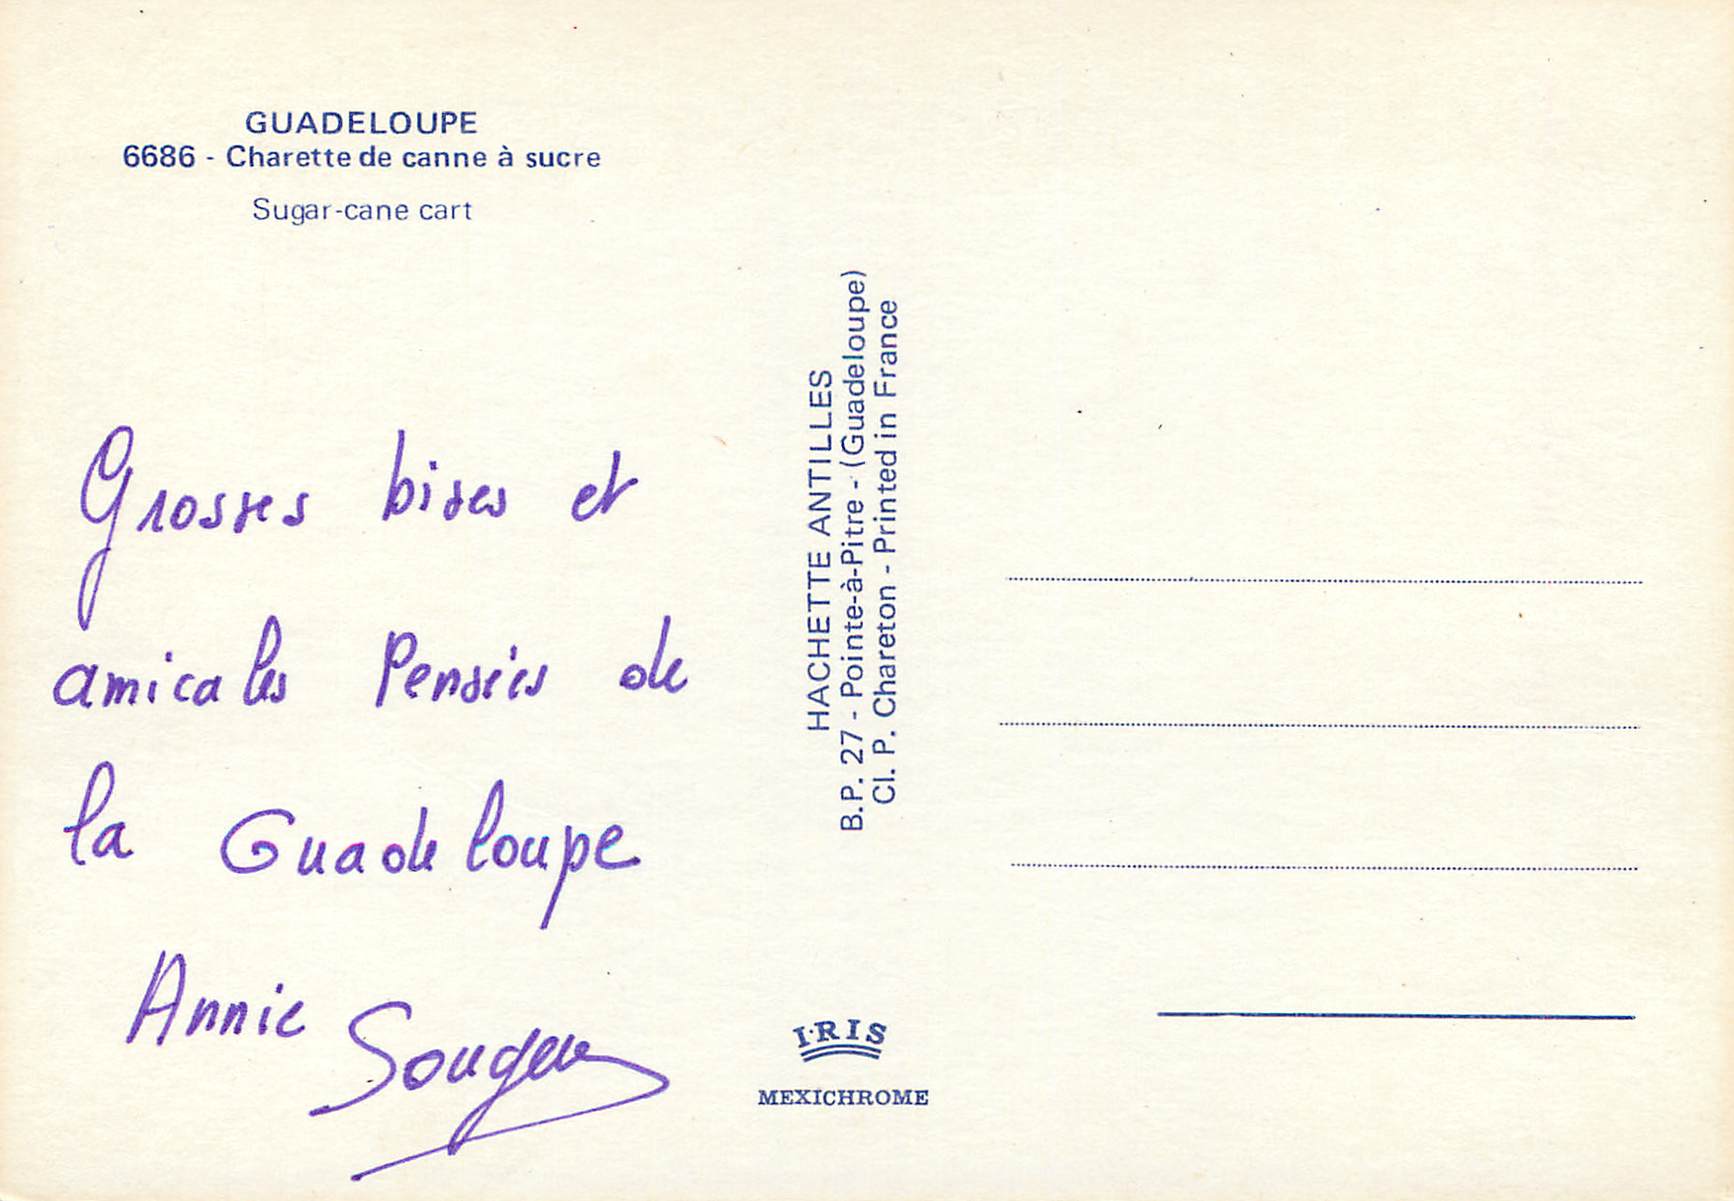 GUADELOUPE
6686 - Charette de canne à sucre
Sugar-cane cart
Grosses bises et
amicales Pensées de
la Guadeloupe
Annie
HACHETTE ANTILLES
B.P. 27 - Pointe-à-Pitre - (Guadeloupe)
Cl. P. Chareton - Printed in France
IRIS
MEXICHROME